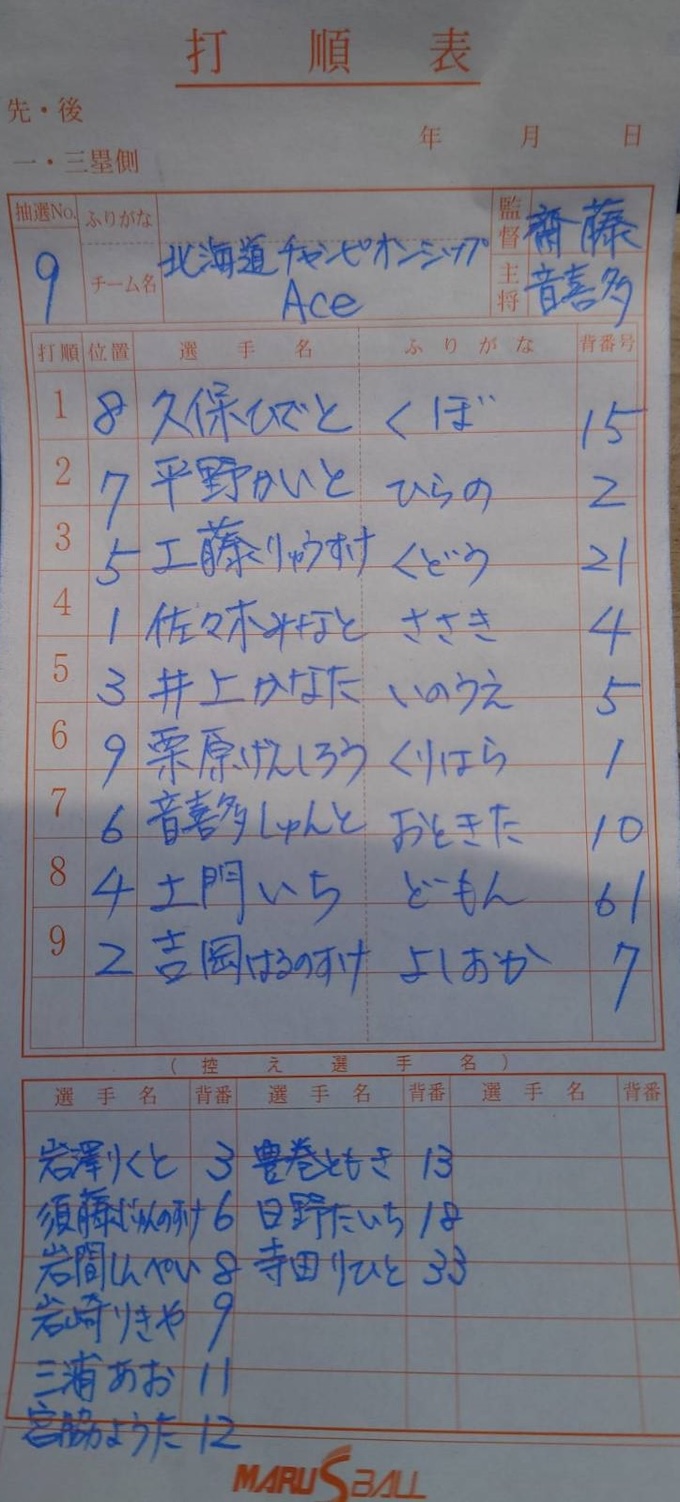 打順表
先・後
年 月 日
一・三塁側
抽選No. ふりがな 監督 齋藤
9 チーム名 北海道チャンピオンシップ 主将 音喜多
Ace
打順 位置 選手名 ふりがな 背番号
1 8 久保ひでと くぼ 15
2 7 平野かいと ひらの 2
3 5 工藤りゅうすけ くどう 21
4 1 佐々木みなと ささき 4
5 3 井上かなた いのうえ 5
6 9 栗原げんしろう くりはら 1
7 6 音喜多しゅんと おときた 10
8 4 土門いち どもん 61
9 2 吉岡はるのすけ よしおか 7
(控え選手名)
選手名 背番 選手名 背番 選手名 背番
岩澤りくと 3 豊巻ともき 13
須藤じゅんのすけ 6 日野たいち 18
岩間しんぺい 8 寺田りひと 33
岩崎りきや 9
三浦あお 11
宮脇ようた 12
MARU S BALL